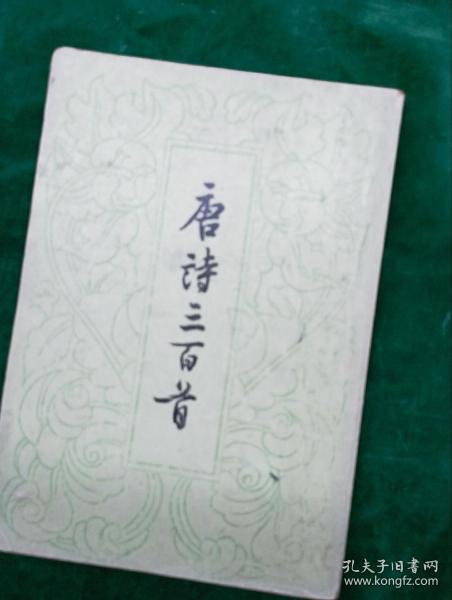 唐詩三百首
孔夫子旧书网
www.kongfz.com